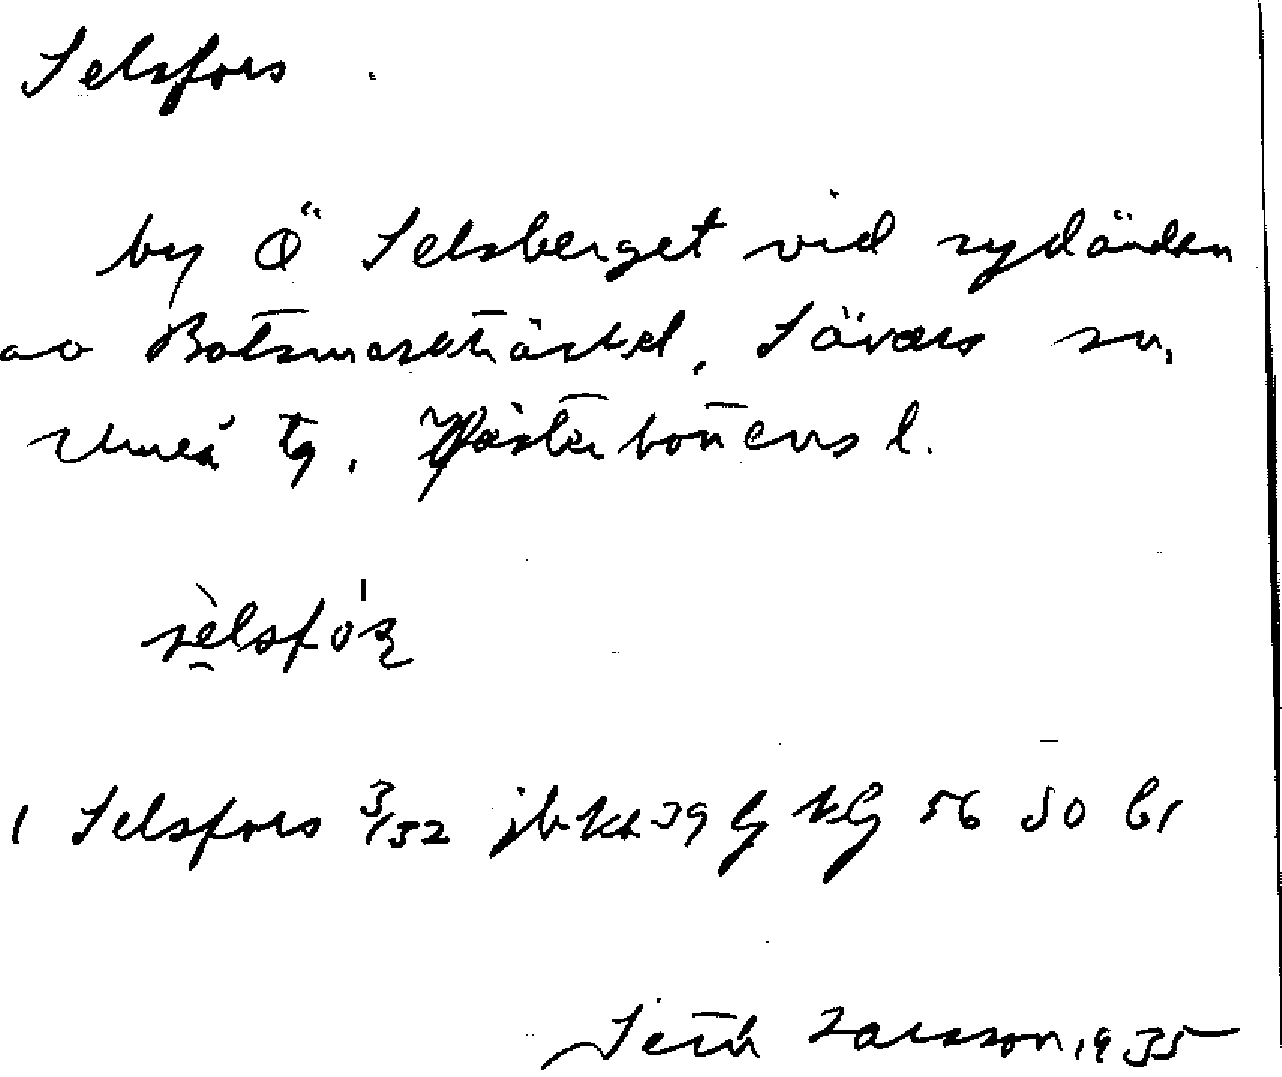 Selsfors
by Ö Selsberget vid sydänden
av Botsmarkträsket, Sävars sn,
Umeå tg, Västerbottens l.
sèlsfós̩
1 Selsfors 3/132 jb kt 39 lj kG 56 SO b1
Seth Larsson, 1935